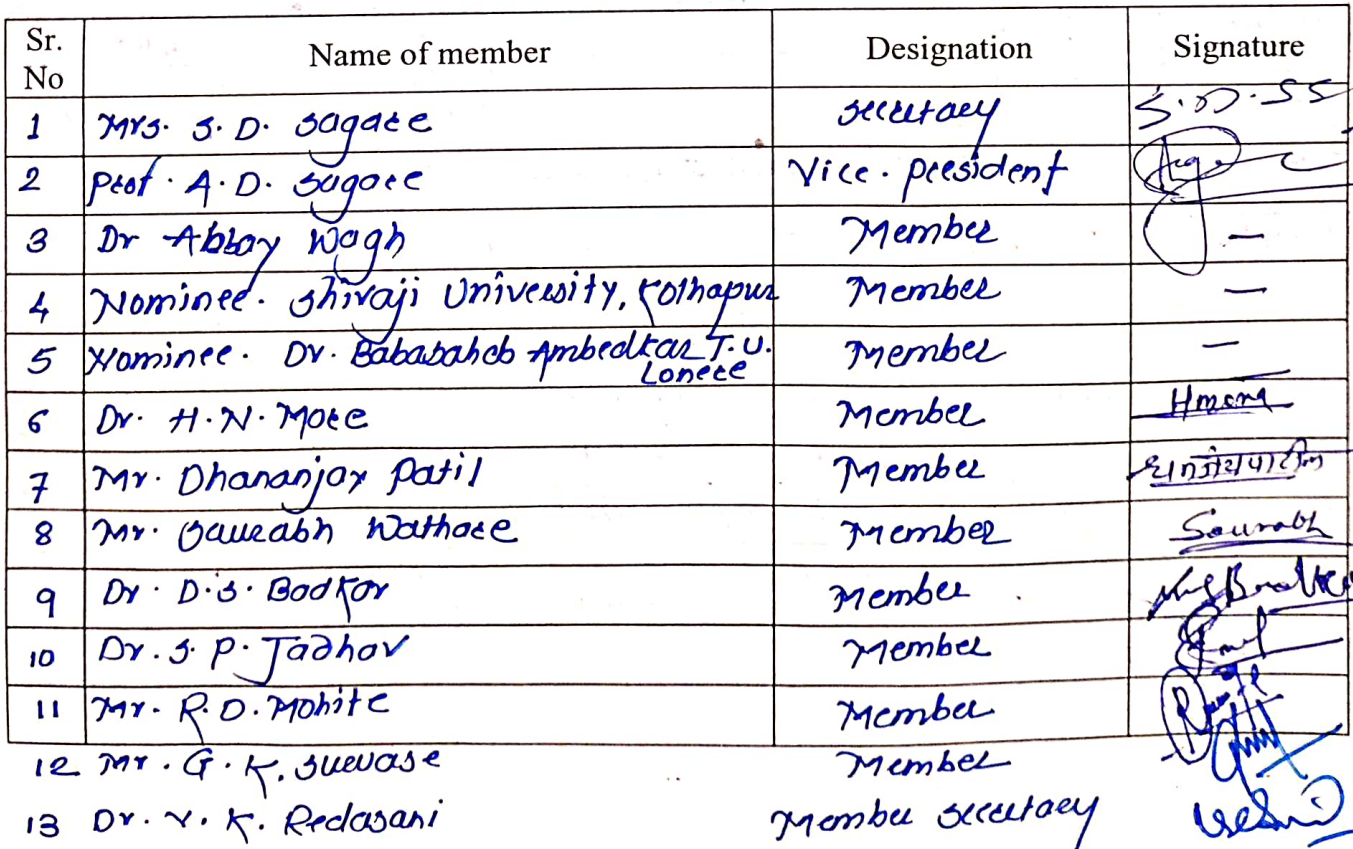 Sr. No Name of member Designation Signature
1 Mrs. S. D. Sagare Secretary S.D.SS
2 Prof. A. D. Sagare Vice. President
3 Dr Abhay Wagh Member —
4 Nominee. Shivaji University, Kolhapur Member —
5 Nominee. Dr. Babasaheb Ambedkar T.U. Member —
Lonere
6 Dr. H. N. More Member
7 Mr. Dhananjay Patil Member धनंजय पाटील
8 Mr. Saurabh Wathare Member Sourabh
9 Dr. D. S. Bodkar Member
10 Dr. S. P. Jadhav Member
11 Mr. R. D. Mohite Member
12 Mr. G. K. Survase Member
13 Dr. V. K. Redasani Member Secretary